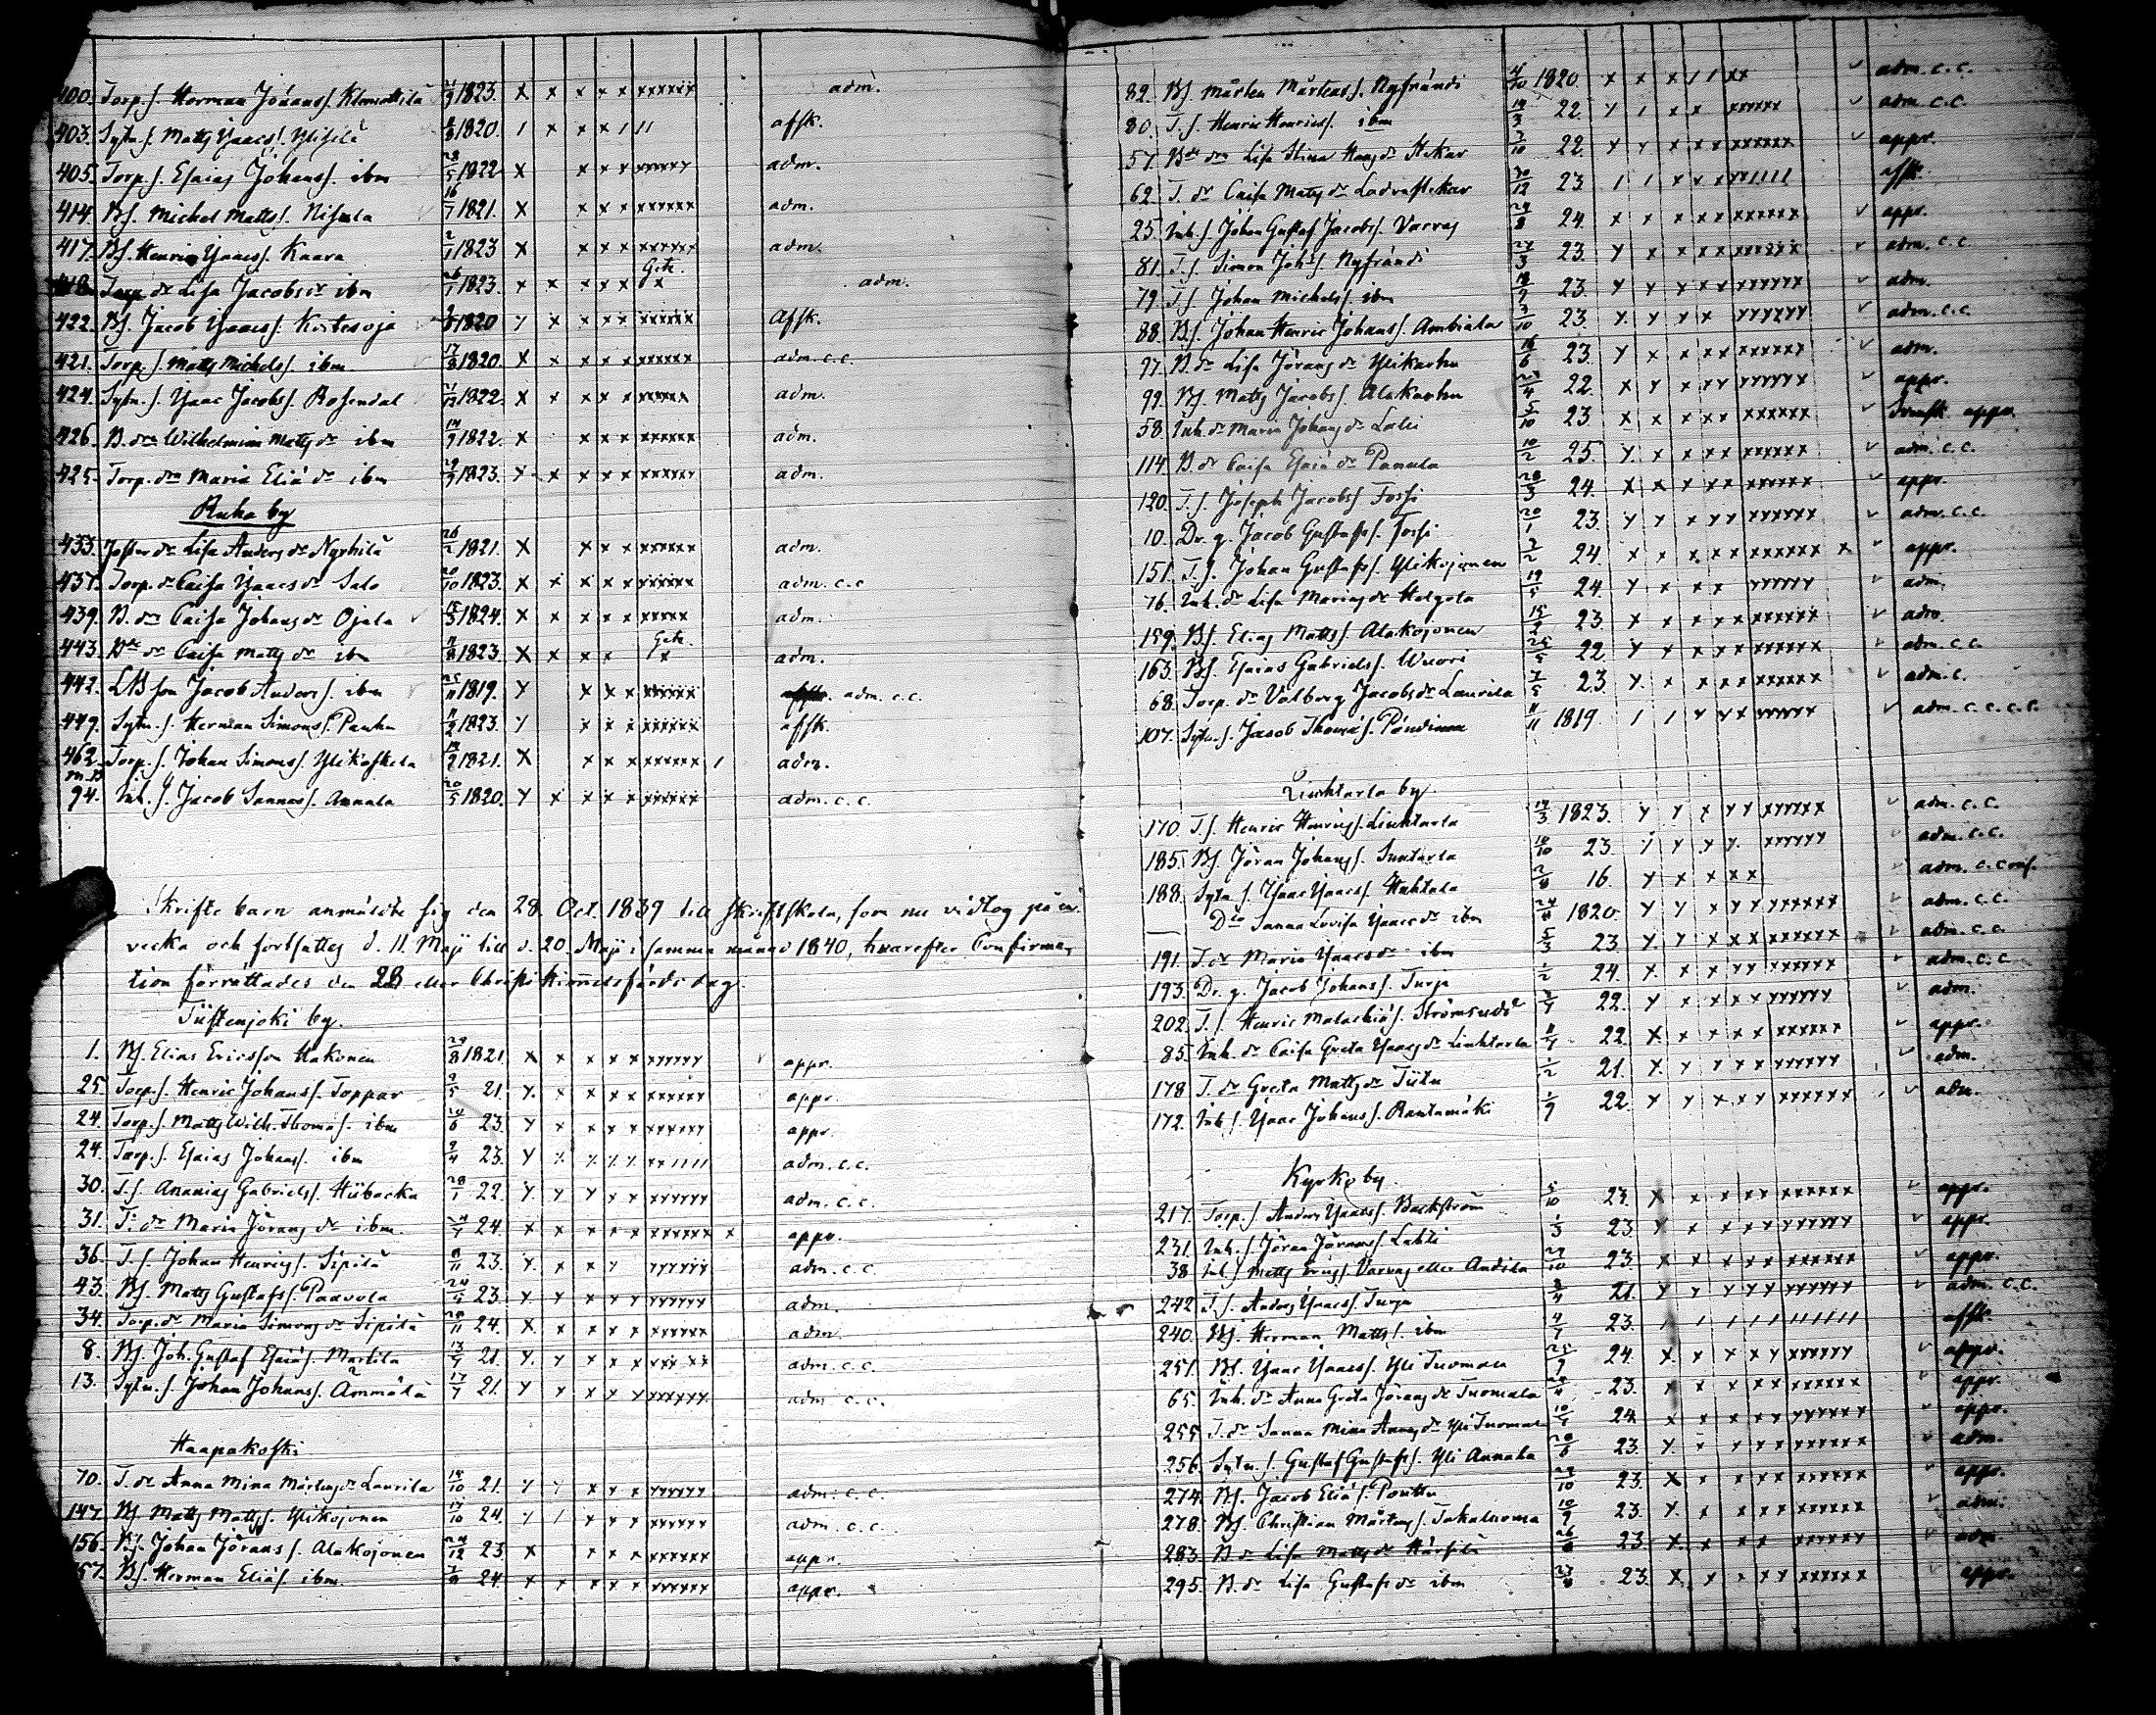 400. Torp. s. Herman Jöranss. Klemettilä 1823. x x x x x xxxxxx adm.
403. Sytn. s. Matts Isaacs. Ylisilä 1820. afsk.
405. Torp. s. Esaias Johanss. ibm 28/5 1822 x x x x xxxxxx adm.
414. Bs. Michel Mattss. Nisula 16/7 1821. x x x x xxxxxx adm.
417. Bs. Henric Isaacs. Kaara 2/1 1823 x x x x xxxxxx adm.
418. Torp. dr Lisa Jacobsdr ibm 26/1 1823. x x x x x Getz. adm.
422. Bs. Jacob Isaacs. Kortesoja 1820 Afsk.
421. Torp. s. Matts Michelss. ibm 17/8 1820. x x x x x xxxxxx adm. c.c.
424. Sytn. s. Isaac Jacobss. Rosendal 1822 x x x x x xxxxxx adm.
426. B. dr Wilhelmina Mattsdr ibm 14/9 1822. x x x x xxxxxx adm.
425. Torp. dr Maria Eliædr ibm 29/9 1823. x x x x x xxxxxx adm.
Ruha by
433. dr Lisa Andersdr Nyrhilä 26/2 1821. x x x x xxxxxx adm.
437. Torp. dr Caisa Isaacsdr Salo 20/10 1823. x x x x x xxxxxx adm. c.c
439. B. dr Caisa Johansdr Ojala 1824. x x x x x xxxxx adm.
443. Bdr dr Caisa Mattsdr ibm 1823. x x x x Getz. x adm.
442. LBson Jacob Anderss. ibm 25/11 1819. x x x x xxxxxx adm. c.c.
449. Sytn. s. Herman Simonss. Panhu 1823. afsk.
462. Torp. s. Johan Simonss. Ylikoskela 1821. x x x x xxxxxx adm.
94. Inh. s. Jacob Sannass. Annala 20/5 1820. x x x x x xxxxxx adm. c.c.
Skrifte barn anmäldte sig den 28. Oct. 1839 till skriftskola, som nu vidtog på en
vecka och fortsattes d. 11. Maji till d. 20. Maji i samma månad 1840, hvarefter Confirma-
tion förrättades den 28 eller Christi Himmelsfärds dag.
Tiistenjoki by.
1. Bs. Elias Ericsson Hakonen 29/8 1821. x x x x x xxxxxx appr.
25. Torp. s. Henric Johanss. Toppar 9/5 21. x x x x x xxxxxx appr.
24. Torp. s. Matts Wilh. Thomæs. ibm 20/6 23. x x x x x xxxxxx appr.
24. Torp. s. Esaias Johanss. ibm 2/4 23. adm. c.c.
30. T. s. Ananias Gabrielss. Hiibacka 28/1 22. x x x x x xxxxxx adm. c.c.
31. T. dr Maria Jöransdr ibm. 24. x x x x x xxxxxx x appr.
36. T. s. Johan Henricss. Sipilä 11/11 23. x x x x xxxxxx adm. c.c.
43. Bs. Matts Gustafss. Paavola 23 x x x x x xxxxxx adm.
34. Torp. dr Maria Simonsdr Sipilä 24. x x x x x xxxxxx adm.
8. Bs. Joh. Gustaf Esaiæs. Marttila 21. x x x x x xxxxxx adm. c.c.
13. Sytn. s. Johan Johanss. Ämmälä 17/7 21. x x x x x xxxxxx adm. c.c.
Haapakoski
70. T. dr Anna Mina Mårtensdr Laurila 18/10 21. adm. c.c.
147. Bs. Matts Mattss. Ylikojonen 17/10 24. adm. c.c.
156. Bs. Johan Jöranss. Alakojonen 24/12 23. x x x x xxxxxx appr.
157. Bs. Herman Eliæs. ibm. 24. x x x x x xxxxxx appr.
82. Bs. Mårten Mårtenss. Nyfrändi 1820. x x x / / xx adm. c.c.
80. T. s. Henric Henricss. ibm 22. adm. c.c.
57. Bdr dr Lisa Stina Hansdr Stekar 2/10 22. x x x x x xxxxxx appr.
62. T. dr Caisa Mattsdr 30/12 23. afsk.
25. Inh. s. Johan Gustaf Jacobss. Varvas 29/8 24. x x x x x xxxxxx appr.
81. T. s. Simon Johss. Nyfrändi 23. x x x x x xxxxxx adm. c.c
79. T. s. Johan Michelss. ibm 23. x x x x x xxxxxx adm.
88. Bs. Johan Henric Johanss. Ambiala 23. x x x x xxxxxx adm. c.c.
97. B. dr Lisa Jöransdr Ylikarhu 16/6 23. x x x x x xxxxxx adm.
99. Bs. Matts Jacobss. Alakarhu 22. x x x x x xxxxxx appr.
58. Inh. dr Maria Johansdr Lahi 5/10 23. x x x x x xxxxxx appr.
114. B. dr Caisa Esaiædr Panula 10/2 25. x x x x x xxxxxx adm. c.c.
120. T. s. Joseph Jacobss. Fossi 28/3 24. x x x x x xxxxxx appr.
10. Dr. g. Jacob Gustafss. Fossi 20/1 23. x x x x x xxxxxx adm. c.c.
151. T. s. Johan Gustafss. Ylikojonen 24. x x x x x xxxxxx x appr.
76. Inh. dr Lisa Mariasdr Helgola 19/5 24. x x x x xxxxxx adm.
159. Bs. Elias Mattss. Alakojonen 23 x x x x x xxxxxx adm.
163. Bs. Esaias Gabrielss. Wuori 25/5 22. x x x x x xxxxxx adm. c.c.
68. Torp. dr Valborg Jacobsdr Laurila 7/5 23. x x x x x xxxxxx adm. c.
107. Sytn. s. Jacob Thomæs. Pändinen 11/11 1819. / / x x x xxxxxx adm. c.c.c.c.
Liuhtarla by.
170. T. s. Henric Henricss. Liuhtarla 1823. x x x x x xxxxxx adm. c.c.
185. Bs. Jöran Johanss. Suutarla 23. adm. c.c.
188. Sytn. s. Isaac Isaacs. Huhtala 16. x x x x x adm. c. conf.
Dto Sanna Lovisa Isaacsdr ibm 1820. x x x x x xxxxxx adm. c.c.
191. T. dr Maria Isaacsdr ibm 5/3 23 x x x x x xxxxxx adm. c.c.
193. Dr. g. Jacob Johanss. Turja 1/2 24. x x x x x xxxxxx adm. c.c
202. T. s. Henric Malachiæs. Strömsund 22. x x x x x xxxxxx adm.
85. Inh. dr Caisa Greta Isaacsdr Liuhtarla 22. x x x x x xxxxxx appr.
178 T. dr Greta Mattsdr Tiitu 1/2 21. x x x x x xxxxxx adm.
172. Inh. s. Isaac Johanss. Rantamäki 1/9 22. x x x x x xxxxxx adm.
Kyrkoby.
217. Torp. s. Anders Isaacs. Backström 5/10 23. x x x x x xxxxxx appr.
231. Inh. s. Jöran Jöranss. Lahti 23 x x x x x xxxxxx appr.
38 Inh. s. Matts Varvas eller Andila 23. x x x x x xxxxxx appr.
242. T. s. Anders Isaacs. Turja 21. x x x x x xxxxxx adm. c.c.
240. Bs. Herman Mattss. ibm 4/7 23. / / / / / ////// afsk.
251. Bs. Isaac Isaacs. Yli Tuomala 24. x x x x x xxxxxx appr.
65. Inh. dr Anna Greta Jöransdr Tuomala 23. x x x x x xxxxxx appr.
255. T. dr Sanna Mina Yli Tuomala 24 x x x x x xxxxxx appr.
256. Sytn. s. Gustaf Gustafss. Yli Annala 23. x x x x x xxxxxx adm.
274. Bs. Jacob Eliæs. Pouttu 23. x x x x x xxxxxx appr.
278. Bs. Christian Mårtenss. Takaluoma 10/9 23. x x x x x xxxxxx adm.
283. B. dr Lisa Mattsdr Härsilä 23 x x x x x xxxxxx adm.
295. B. dr Lisa Gustafsdr ibm 23. x x x x x xxxxxx appr.